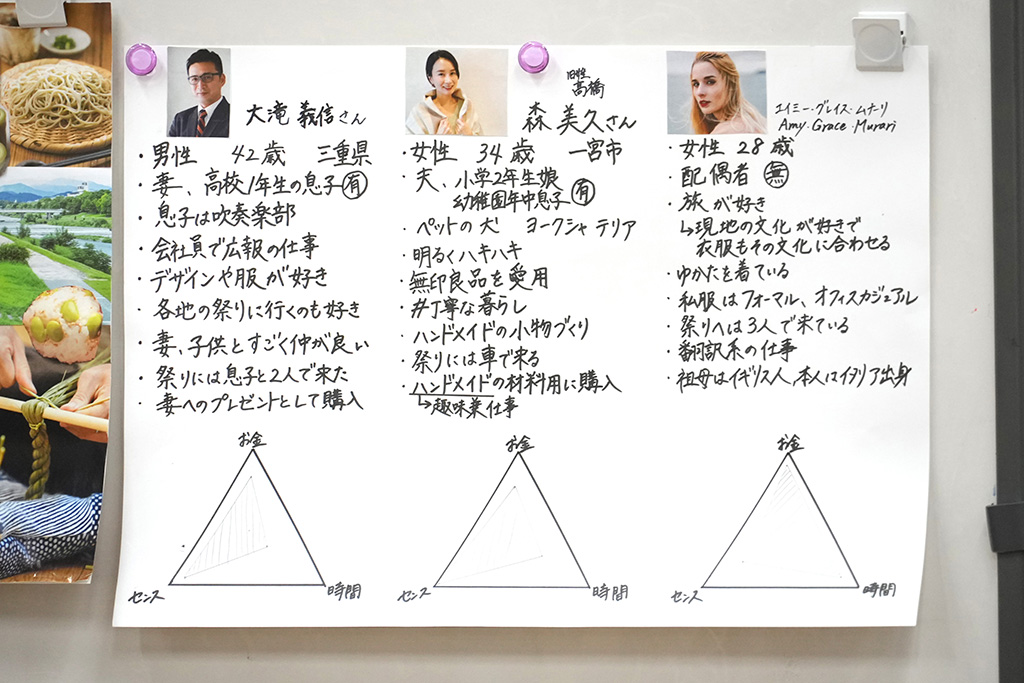 大滝 義信さん
・男性 42歳 三重県
・妻、高校1年生の息子 有
・息子は吹奏楽部
・会社員で広報の仕事
・デザインや服が好き
・各地の祭りに行くのも好き
・妻、子供とすごく仲が良い
・祭りには息子と2人で来た
・妻へのプレゼントとして購入
お金
センス
時間
旧姓
高橋
森 美久さん
・女性 34歳 一宮市
・夫、小学2年生娘
幼稚園年中息子 有
・ペットの犬 ヨークシャテリア
・明るくハキハキ
・無印良品を愛用
・#丁寧な暮らし
・ハンドメイドの小物づくり
・祭りには車で来る
・ハンドメイドの材料用に購入
↳趣味兼仕事
お金
センス
時間
エイミー・グレイス・ムナーリ
Amy・Grace・Munari
・女性 28歳
・配偶者 無
・旅が好き
↳現地の文化が好きで
衣服もその文化に合わせる
・ゆかたを着ている
・私服はフォーマル、オフィスカジュアル
・祭りへは3人で来ている
・翻訳系の仕事
・祖母はイギリス人、本人はイタリア出身
お金
センス
時間